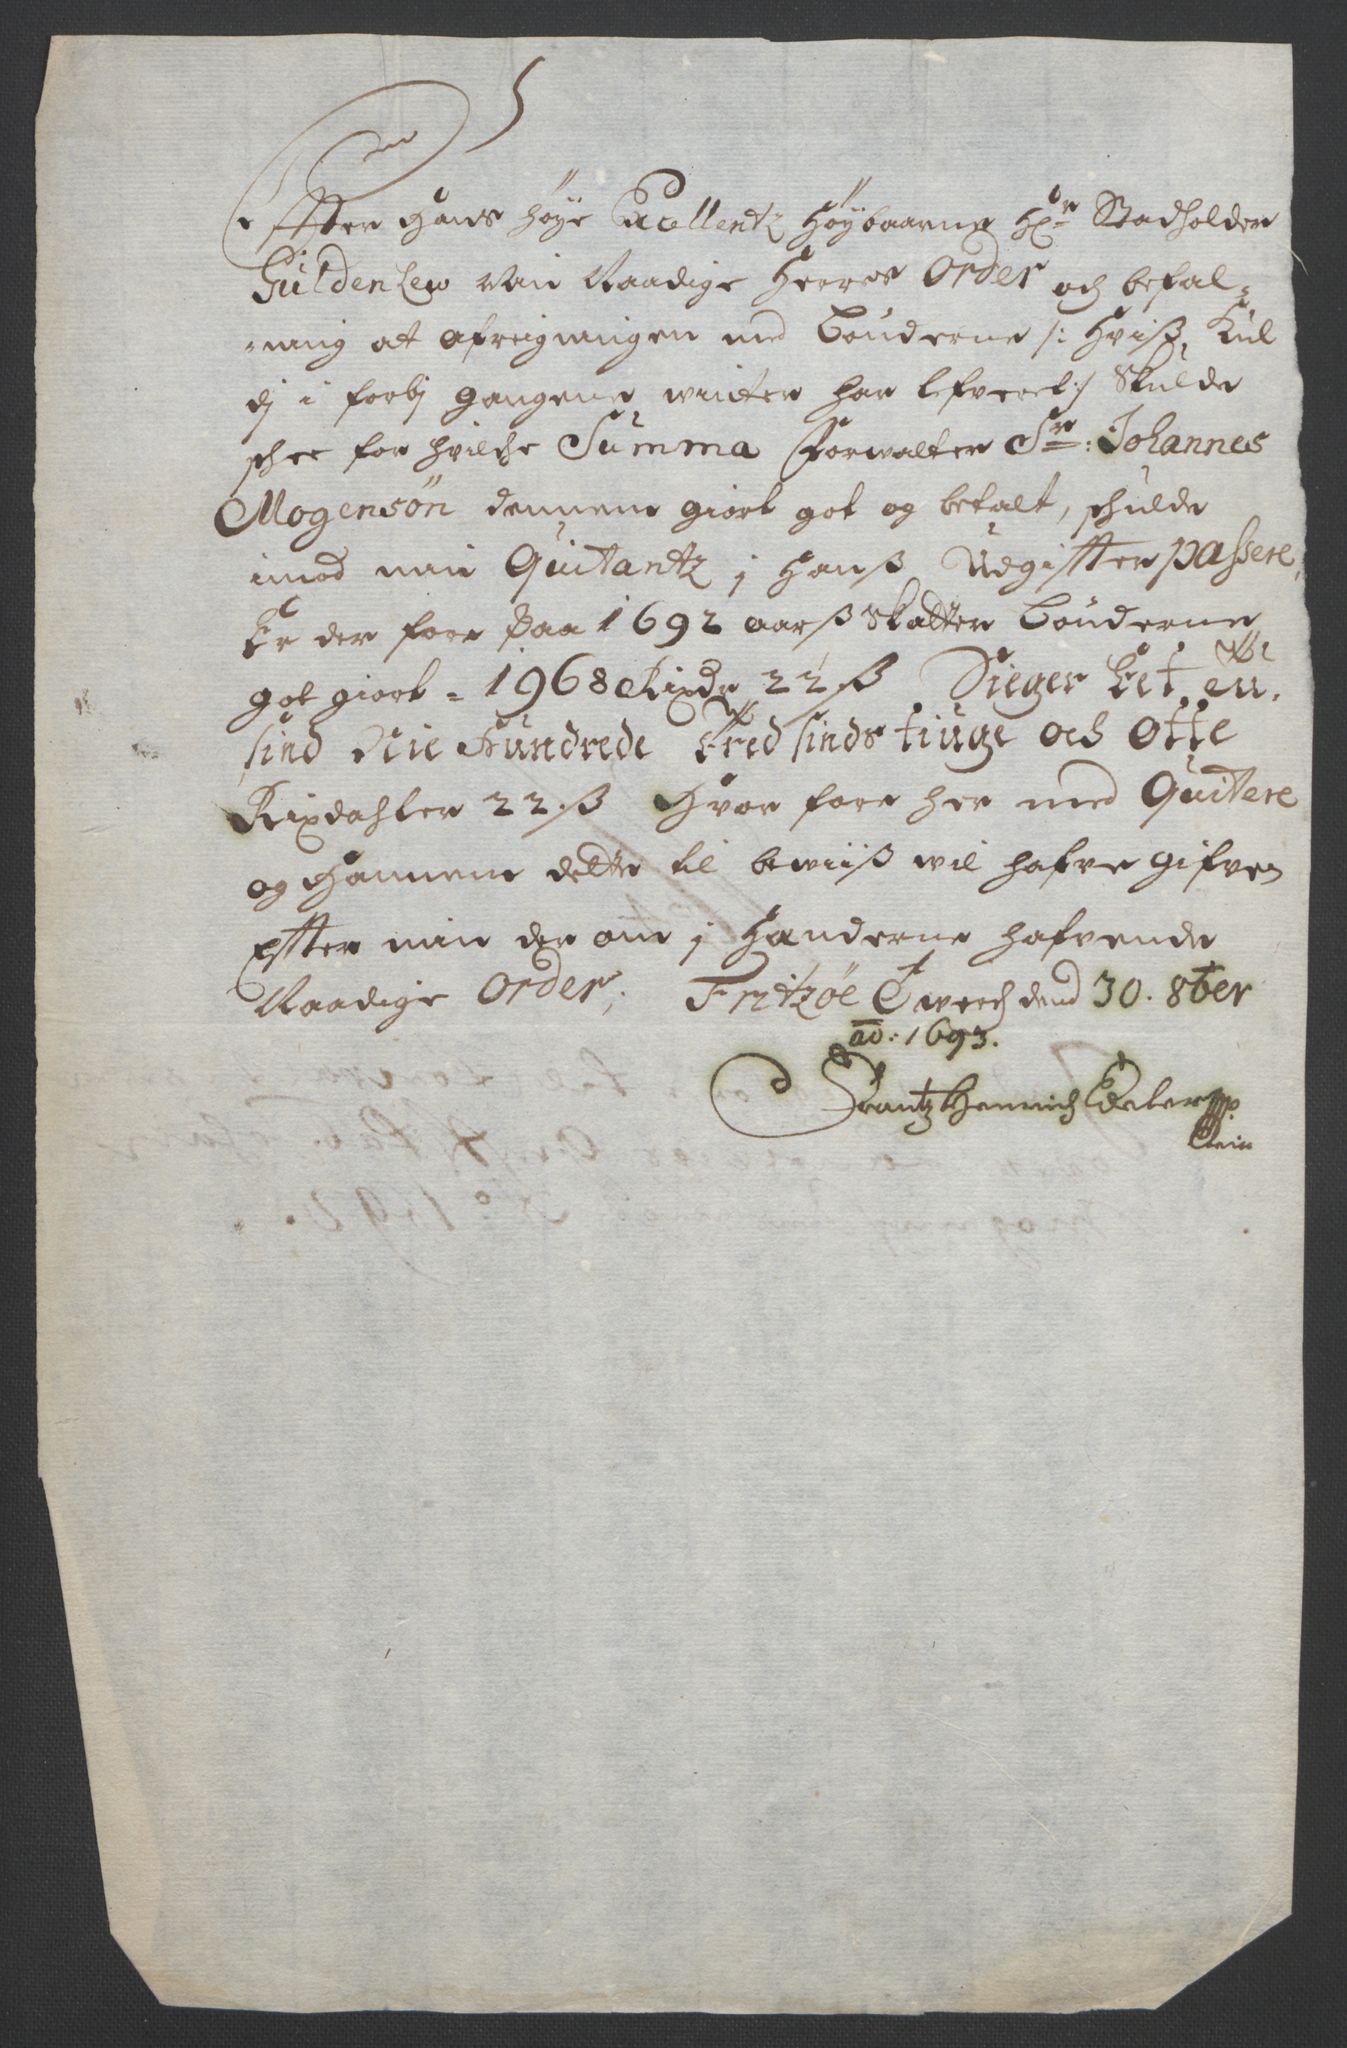 Efter Hans höye Excellentz Höybaarne Hr. Stadholder
Güldenlew min Naadige Herres Order och befal-
ning at afreigningen med Bönderne /: Hviß Kul
dj i forbj gangene winter har lefveret :/ Skulde
schee for hvilche Summa Forwalter Sr: Johannes
Mogensön dennem giort got og betalt, schulde
imod min Quitantz j Hanß Udgifter passere,
Er der fore paa 1692 aarß Skatter Bönderne
got giort = 1968 Rixdr 22 ß Sieger Eet tu,
sind Nie Hundrede Tredsindstiuge och Otte
Rixdahler 22 ß Hvor fore her med Quitere
og Hannem dette til bewiiß wil hafve gifven
Efter min der om j Handerne hafvende
Naadige Order, Fritzöe werch dend 30. 8ber
ao: 1693.
Frantz Henrich